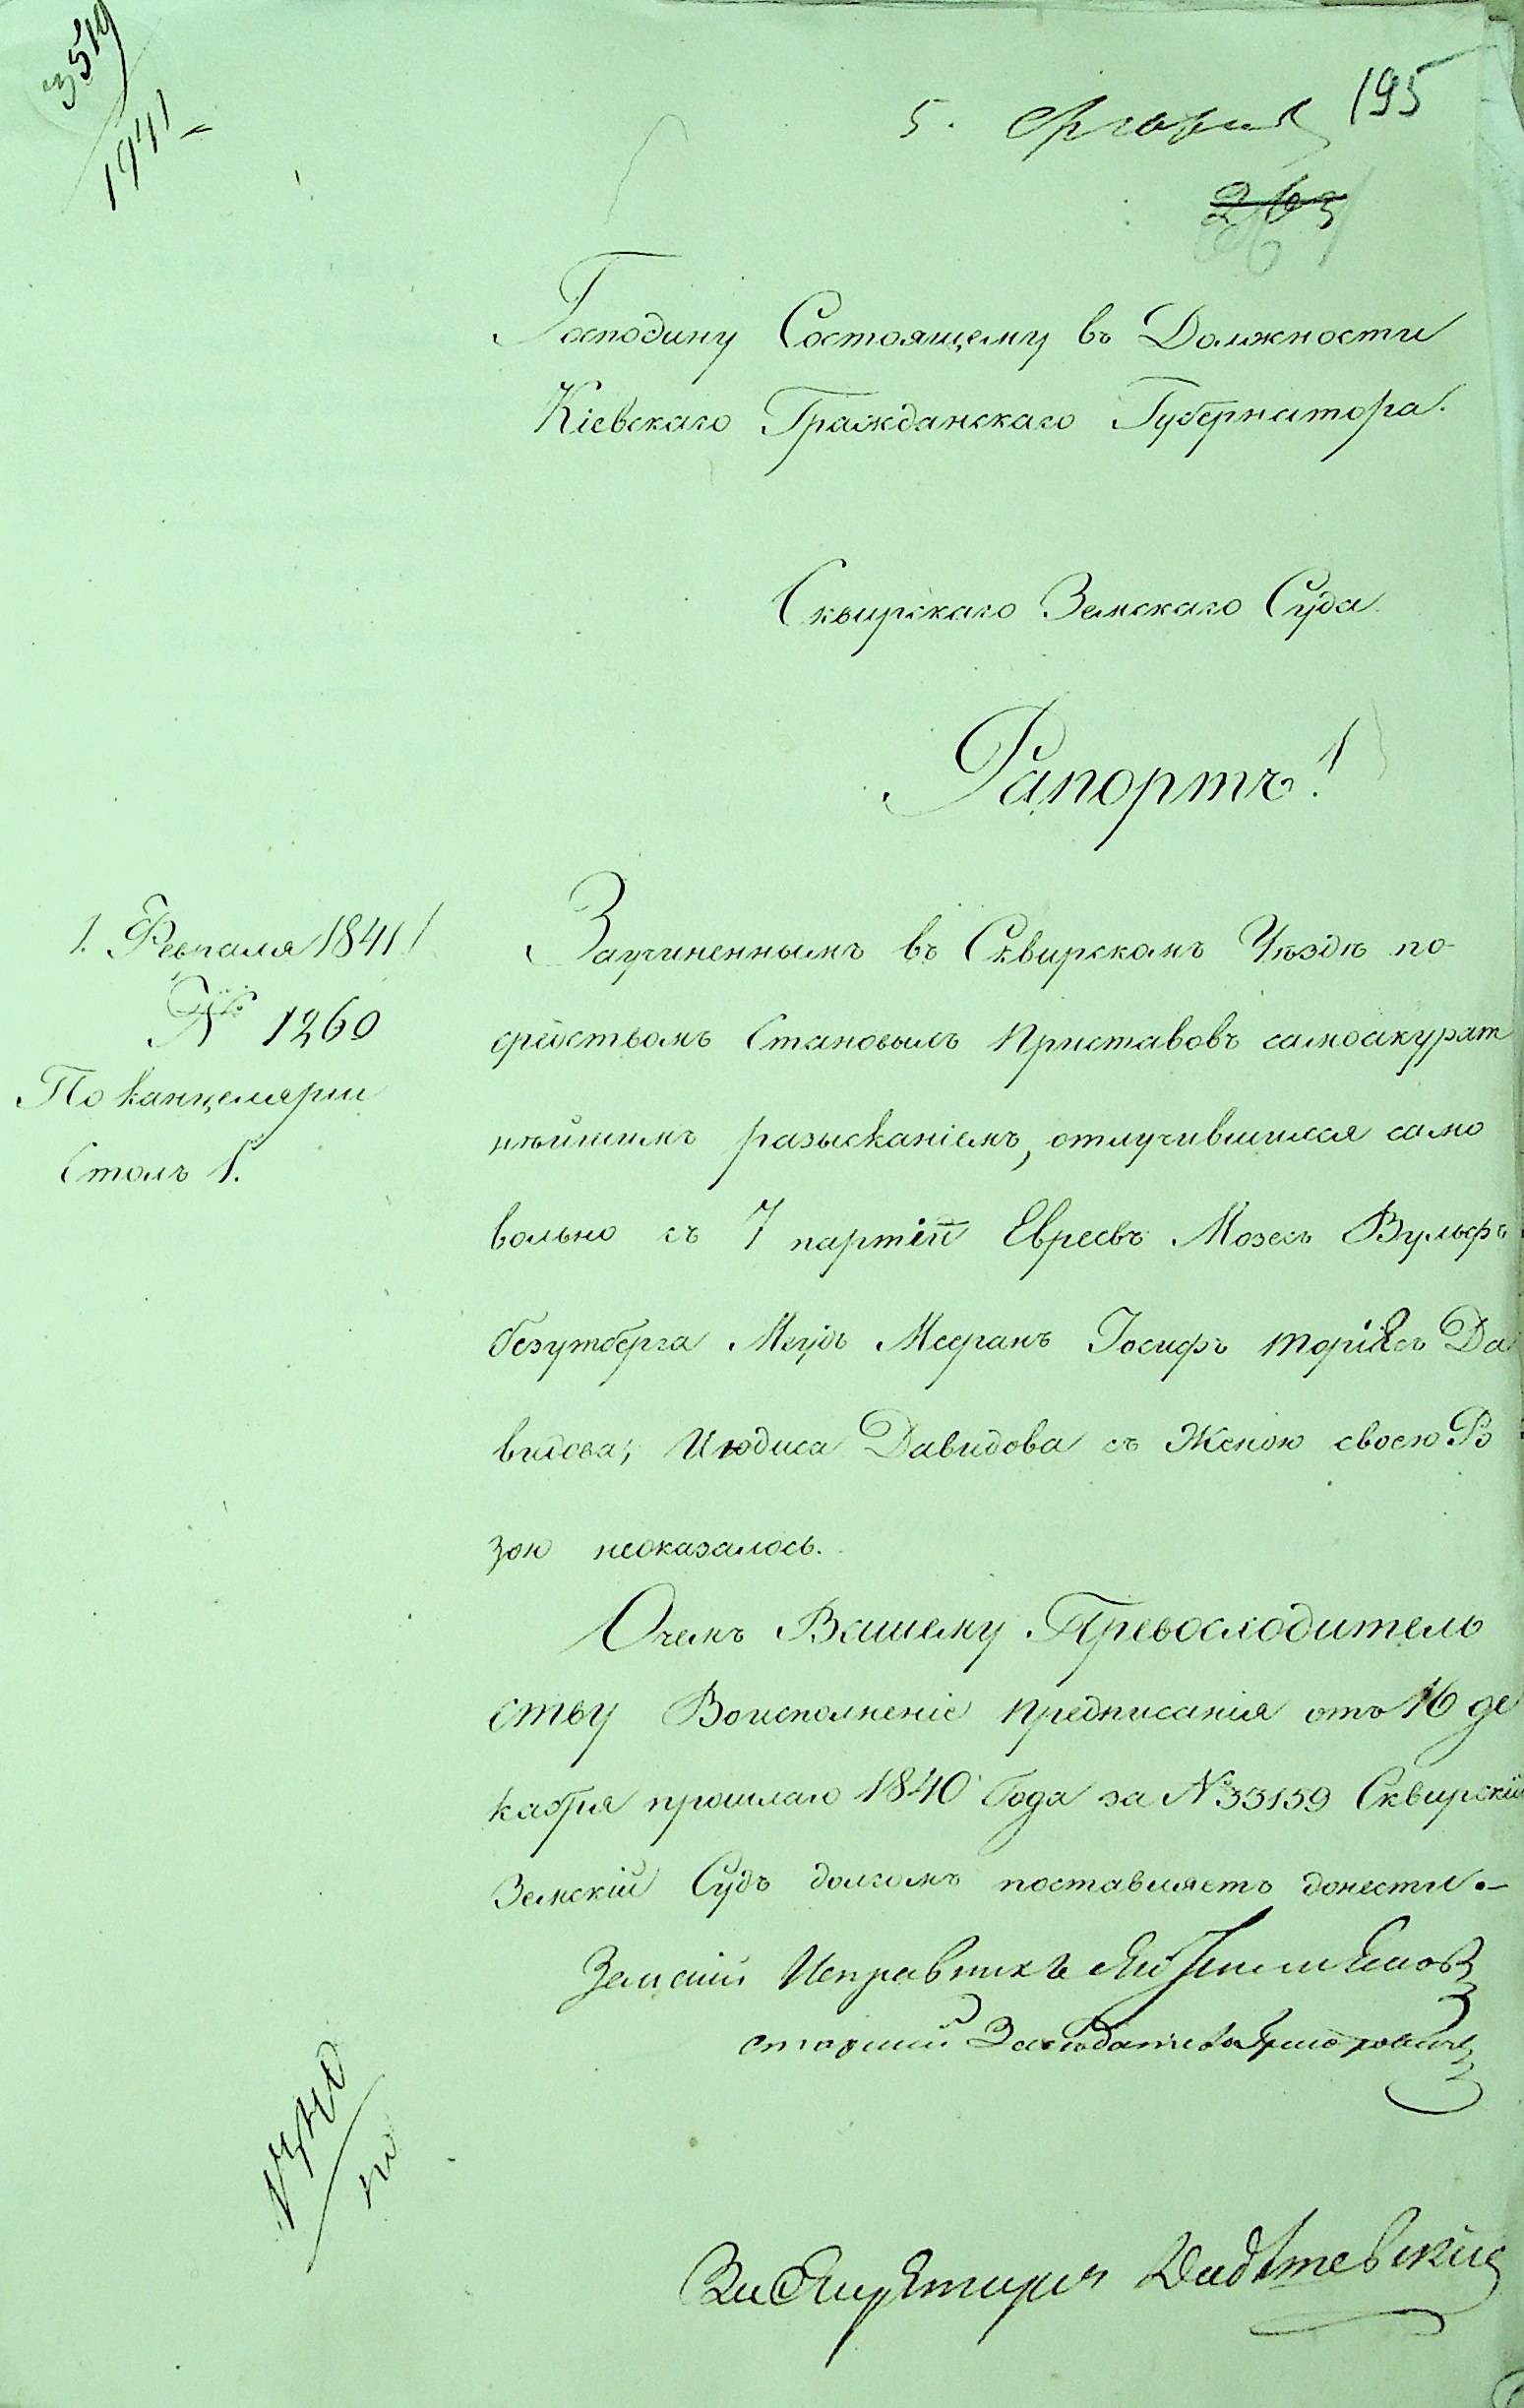 3519
1941
5. февраля 195
263
Господину Состоящему въ Должности
Кіевскаго Гражданскаго Губернатора.
Сквирскаго Земскаго Суда
Рапортъ!
1. Февраля 1841!
№ 1260
По канцелярии
Столъ 1.
Заучиненнымъ въ Сквирскомъ Уѣздѣ по-
средствомъ Становыхъ Приставовъ самоакурат
нѣйшимъ разысканіемъ, отлучившихся само
вольно съ 7 партіи Евреевъ Мозесъ Вульфъ
Иосифъ Да
видова; Июдиса Давидова съ Женою своею Ро
зою неоказалось.
Очемъ Вашему Превосходитель
ству Воисполненіе предписанія отъ 16 де
кабря прошлаго 1840 Года за № 33159 Сквирскій
Земскій Судъ долгомъ поставляетъ донести.-
Земскій Исправникъ
Старшій Заседатель
За Секретаря